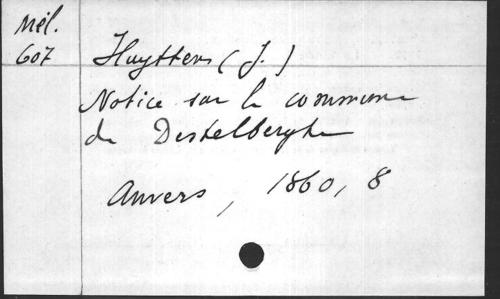 Mél.
607
Huyttens (J.)
Notice sur la commune
de Destelberghe
Anvers, 1860, 8